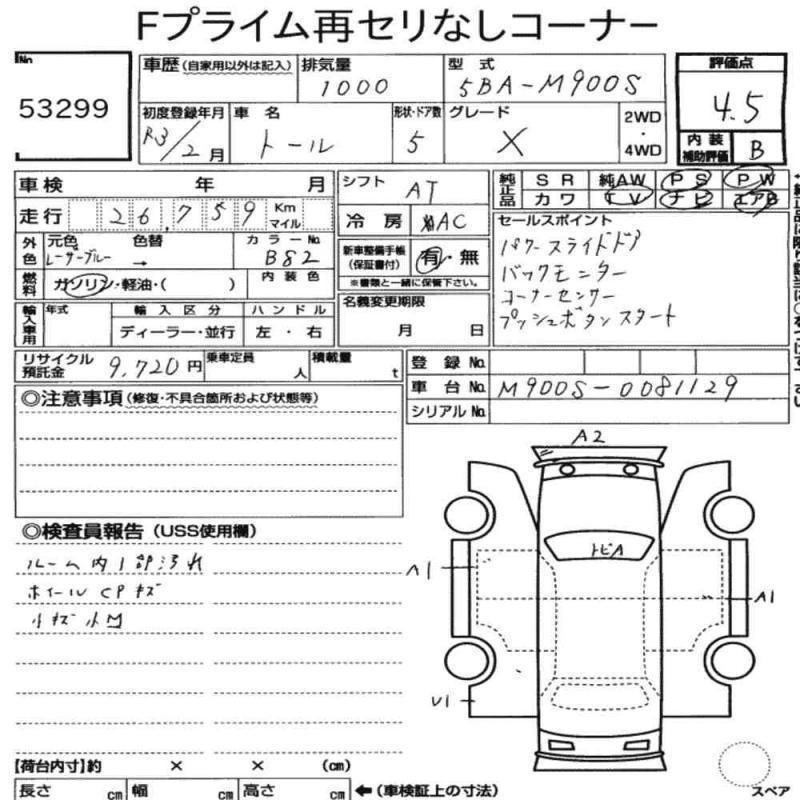 Fプライム再セリなしコーナー
No 53299
車歴(自家用以外は記入) 排気量 1000 型式 5BA-M900S 評価点 4.5
初度登録年月 R3/2月 車名 トール 形状・ドア数 5 グレード X 2WD・4WD 内装補助評価 B
車検 年 月 シフト AT 純正品 SR 純AW PS PW
カワ TV ナビ エアB
走行 26,759 Km マイル 冷房 AAC セールスポイント
外色 元色 レーザーブルー 色替 → カラーNo. B82 新車整備手帳(保証書付) 有・無 パワースライドドア
※書類と一緒に保管下さい。 バックモニター
燃料 ガソリン・軽油・( ) 内装色 名義変更期限 月 日 コーナーセンサー
プッシュボタンスタート
輸入車用 年式 輸入区分 ハンドル
ディーラー・並行 左・右
リサイクル預託金 9,720円 乗車定員 人 積載量 t 登録No.
車台No. M900S-0081129
シリアルNo.
◎注意事項(修復・不具合箇所および状態等)
◎検査員報告(USS使用欄)
ルーム内1部汚れ
ホイールCPキズ
小キズ小凹
A2
トビA
A1
A1
U1
【荷台内寸】約 × × (cm)
長さ cm 幅 cm 高さ cm ←(車検証上の寸法)
スペア